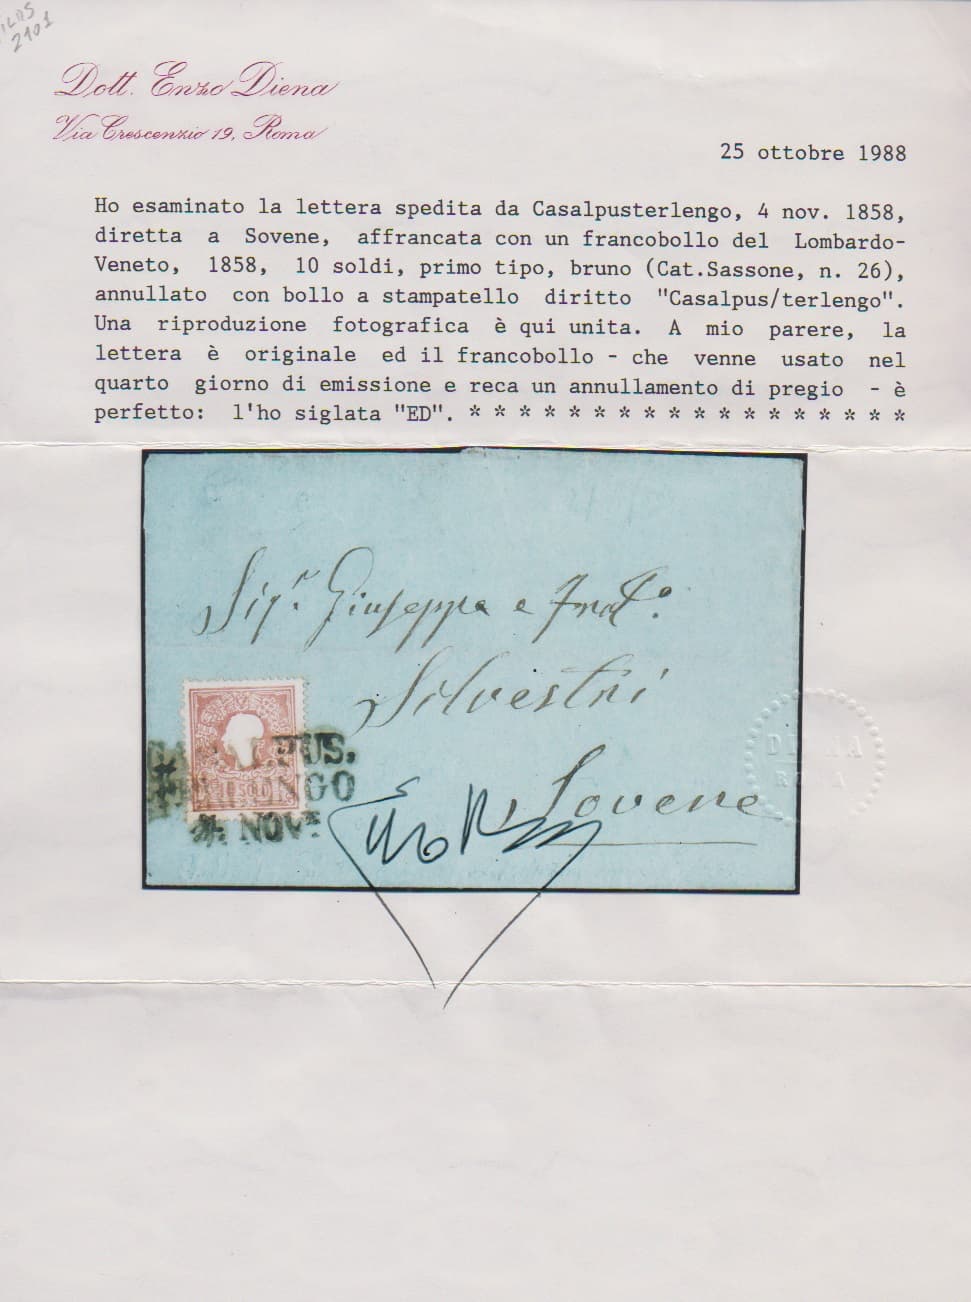 2101
Dott. Enzo Diena
Via Crescenzio 19, Roma
25 ottobre 1988
Ho esaminato la lettera spedita da Casalpusterlengo, 4 nov. 1858,
diretta a Sovene, affrancata con un francobollo del Lombardo-
Veneto, 1858, 10 soldi, primo tipo, bruno (Cat.Sassone, n. 26),
annullato con bollo a stampatello diritto "Casalpus/terlengo".
Una riproduzione fotografica è qui unita. A mio parere, la
lettera è originale ed il francobollo - che venne usato nel
quarto giorno di emissione e reca un annullamento di pregio - è
perfetto: l'ho siglata "ED". * * * * * * * * * * * * * * * * * *
Sigr. Giuseppe e Frat.o
Silvestri
Sovene
10 SOLDI
CASALPUS,
TERLENGO
4. NOV.
DIENA
ROMA